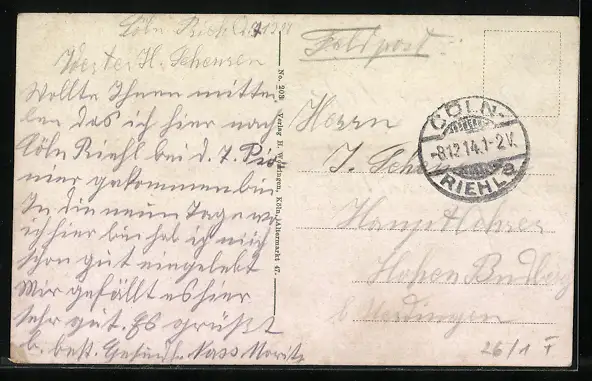 Cöln Riehl
Werter H. Schensen
Wollte Ihnen mittei
len das ich hier nach
Cöln Riehl bei d. 7. Pio
nier gekommen bin
In die neun Tage wo
ich hier bin hab ich mich
schon gut eingelebt
Mir gefällt es hier
sehr gut. Es grüßt
b. best. Gesundh. Nass Moritz
No. 203 Verlag H. Köln, Altermarkt 47.
Feldpost
CÖLN-
-8.12.14.1-2V.
RIEHL a
Herrn
J. Schensen
Hauptlehrer
Hohen Budberg
b. Uerdingen
26/1 F